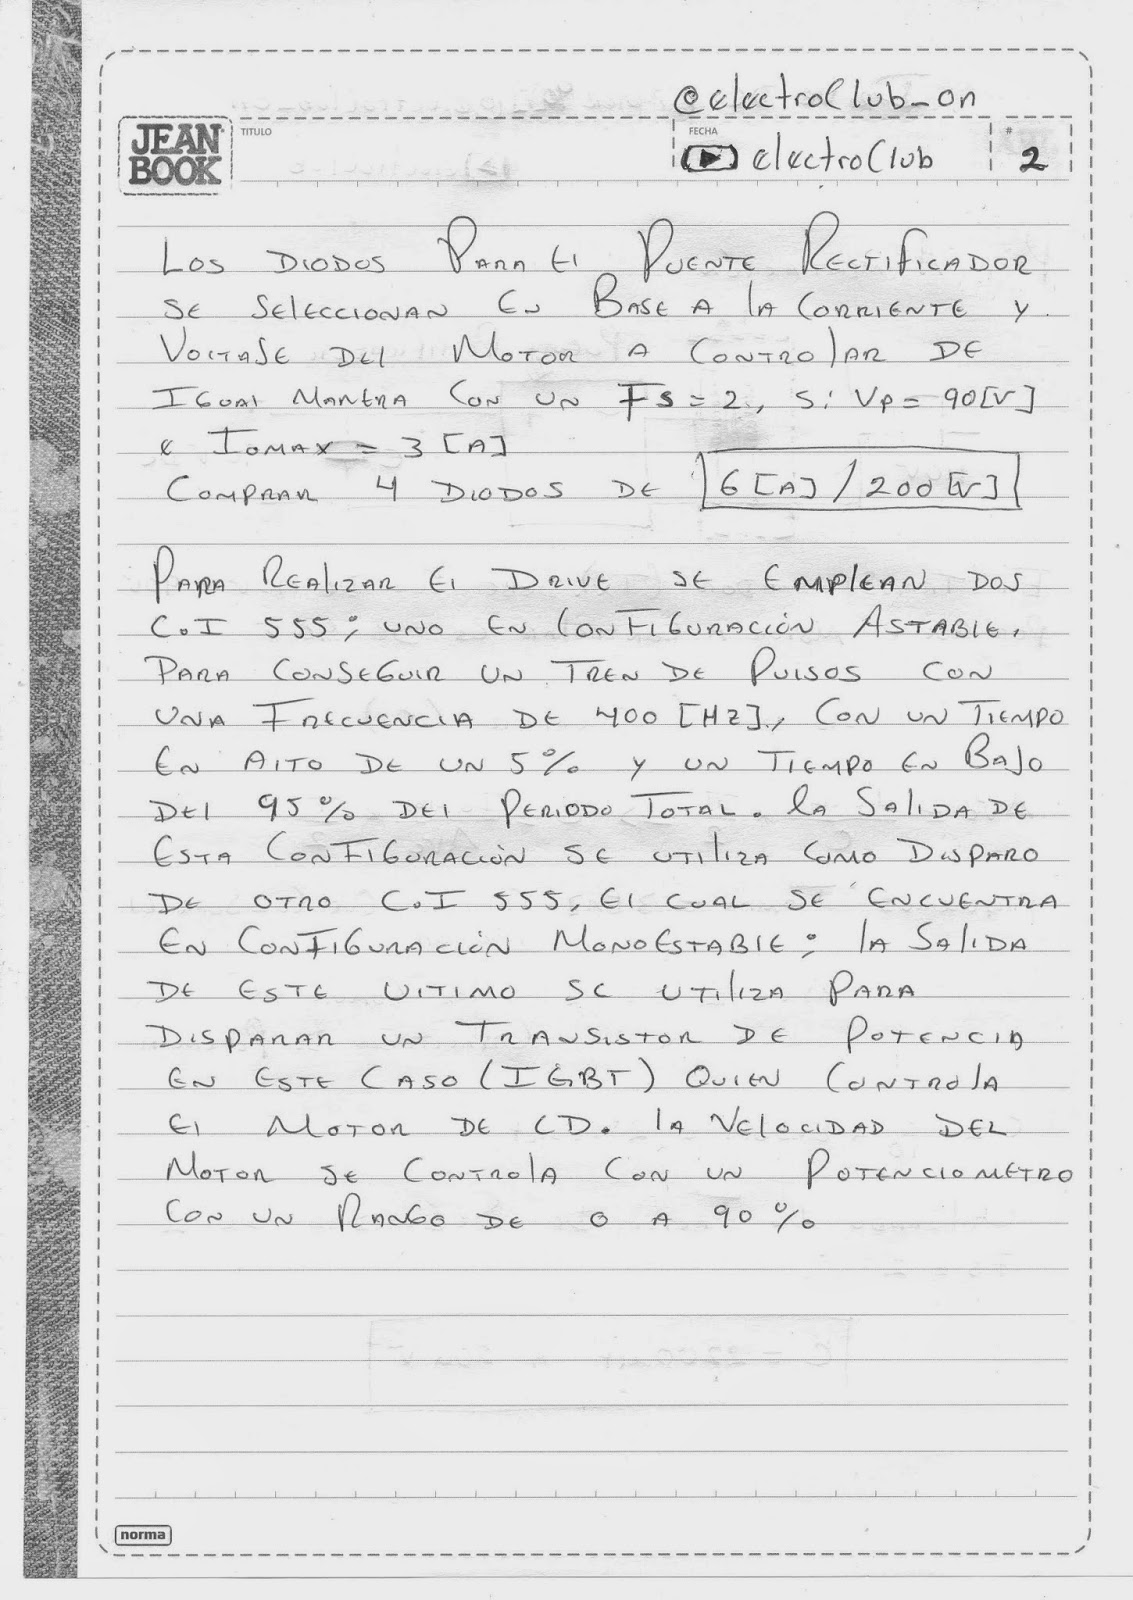 @electroClub_on
JEAN BOOK
TITULO
FECHA
electroClub
#
2
Los Diodos Para el Puente Rectificador
se seleccionan en Base a la corriente y
Voltaje del Motor a controlar de
Igual manera con un Fs = 2, si Vp = 90[V]
& Iomax = 3 [A]
Comprar 4 Diodos de 6[A] / 200[V]
Para Realizar el Drive se emplean dos
C.I 555; uno en configuración Astable,
Para conseguir un tren de pulsos con
una Frecuencia de 400 [Hz], con un tiempo
en alto de un 5% y un tiempo en Bajo
del 95% del periodo total. la salida de
esta configuración se utiliza como disparo
de otro C.I 555, el cual se encuentra
en configuración monoestable; la salida
de este ultimo se utiliza para
disparar un transistor de potencia
en este caso (IGBT) Quien controla
el motor de CD. la velocidad del
motor se controla con un potenciometro
con un Rango de 0 a 90%
norma